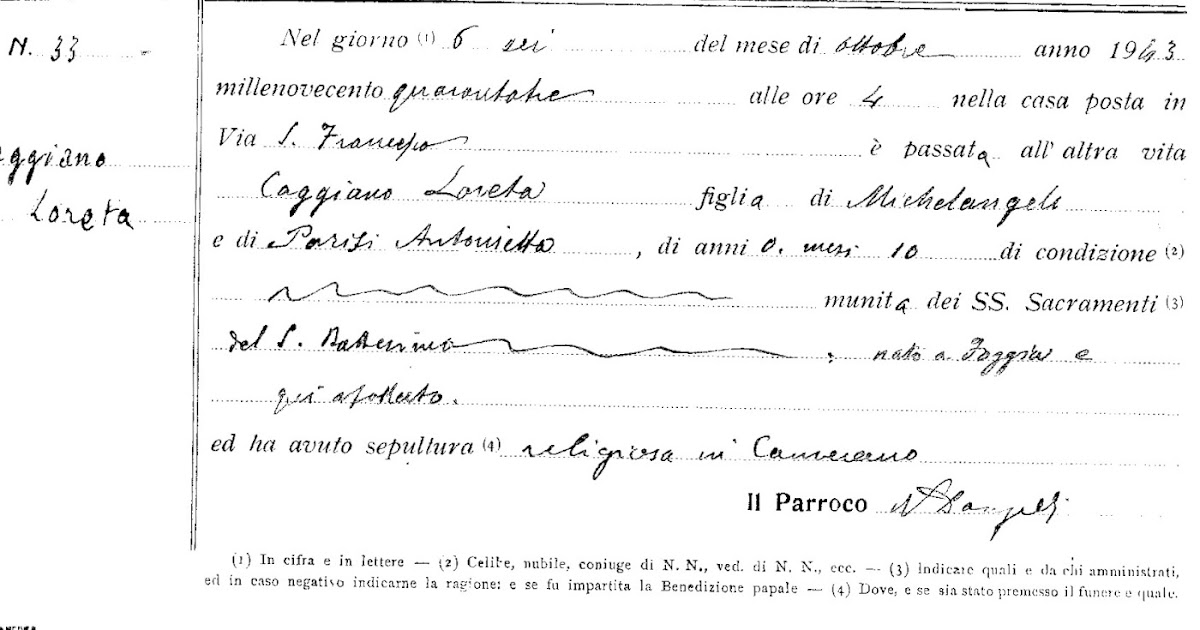 N. 33
Nel giorno (1) 6 sei del mese di ottobre anno 1943
millenovecento quarantatre alle ore 4 nella casa posta in
Via S. Francesco è passata all'altra vita
aggiano
Loreta
Caggiano Loreta figlia di Michelangelo
e di Parisi Antonietta, di anni 0. mesi 10 di condizione (2)
munita dei SS. Sacramenti (3)
del S. Battesimo, nato a Foggia e
qui sfollato.
ed ha avuto sepultura (4) religiosa in
Il Parroco
(1) In cifra e in lettere — (2) Celibe, nubile, coniuge di N. N., ved. di N. N., ecc. — (3) Indicare quali e da chi amministrati,
ed in caso negativo indicarne la ragione: e se fu impartita la Benedizione papale — (4) Dove, e se sia stato premesso il funere e quale.